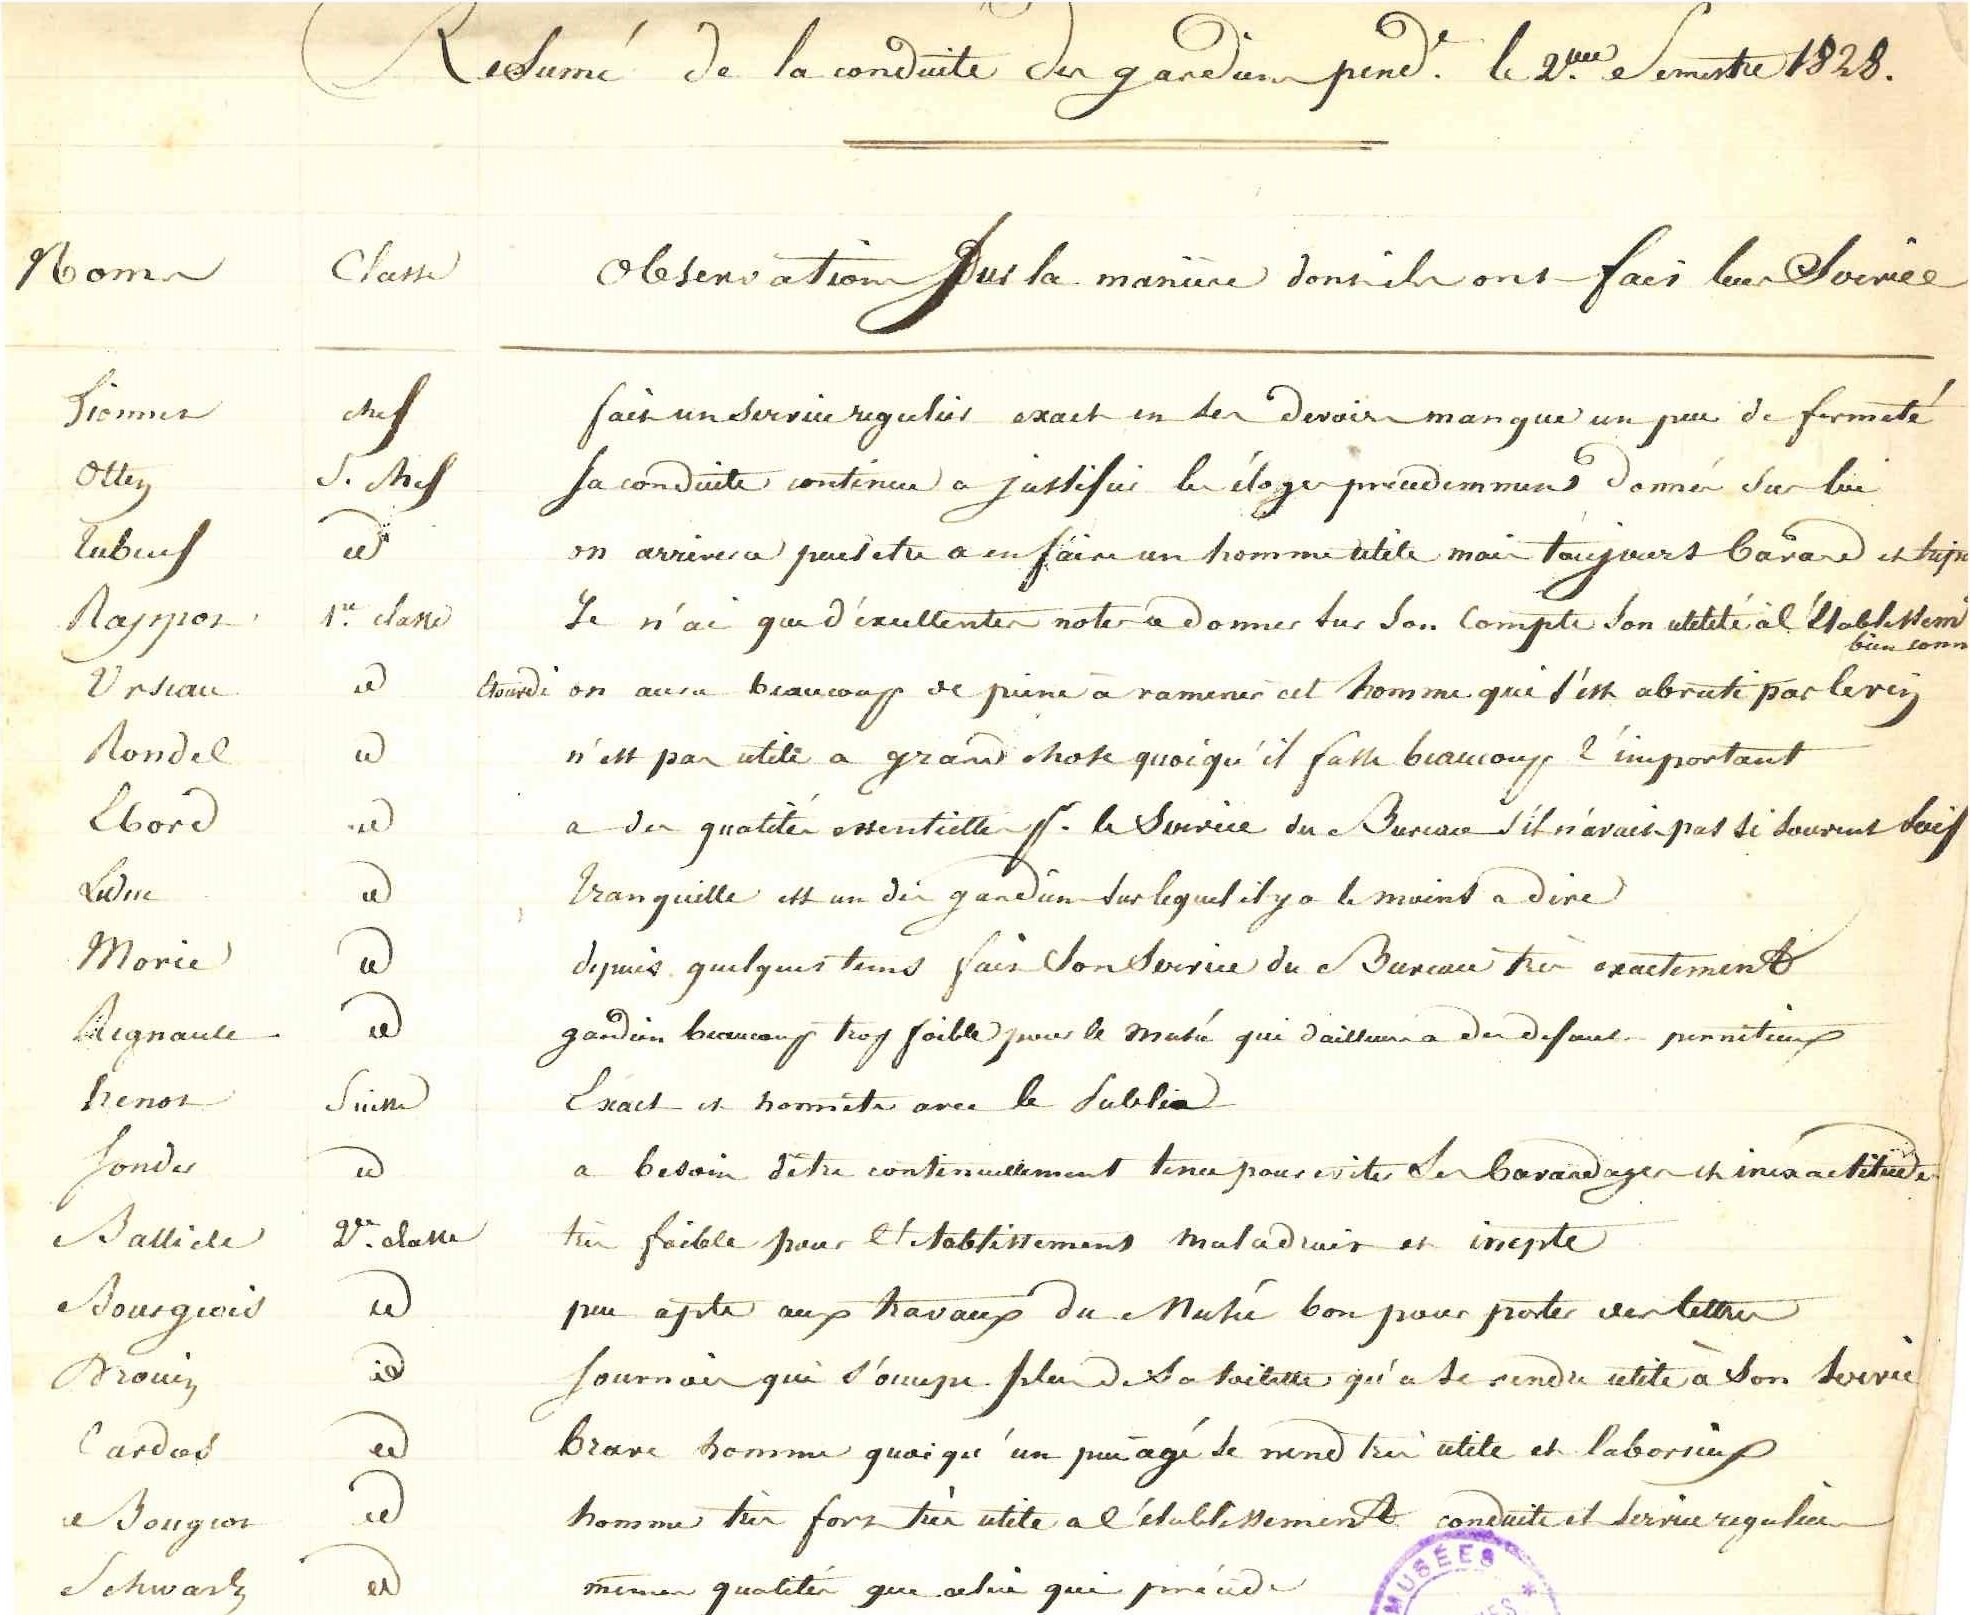 Resumé de la conduite des gardiens pend.t le 2.me Semestre 1828.
Noms Classe Observations Sur la manière dont ils ont fait leur Service
chef fait un Service regulier exact en ses devoirs manque un peu de fermeté
Ottin S. chef Sa conduite continue a justifier les éloges précedemment donnés sur lui
id on arrivera peut etre a en faire un homme utile mais toujours bavard et
1.re classe Je n'ai que d'éxcellentes notes a donner sur Son Compte Son utilité à l'Etablissem
bien conn
Urseau id Etourdi on aura beaucoup de peine à ramener cet homme qui s'est abruti par le vin
Rondel id n'est pas utile a grand chose quoiqu'il fasse beaucoup l'important
Ebord id a des qualités essentielles p.r le Service du Bureau s'il n'avait pas si souvent Soif
Leduc id tranquille est un des gardiens sur lequel il y a le moins a dire
Morice id depuis quelques tems fait Son Service du Bureau très exactement
Regnault id gardien beaucoup trop faible pour le Musée qui d'ailleurs a des defauts pernitieux
Suisse Exact et honnete avec le Public
id a besoin d'être continuellement tenu pour eviter Ses bavardages et inéxactitudes
2.e classe très faible pour l'Etablissement maladroit et inepte
Bourgeois id peu apte aux travaux du Musée bon pour porter des lettres
Drouin id Sournois qui s'occupe plus de Sa toilette qu'a se rendre utile à Son Service
Cardos id brave homme quoiqu'un peu agé se rend très utile et laborieux
Bougeot id homme très fort très utile a l'établissement conduite et Service reguliers
Schwartz id mêmes qualités que celui qui précède
MUSÉES